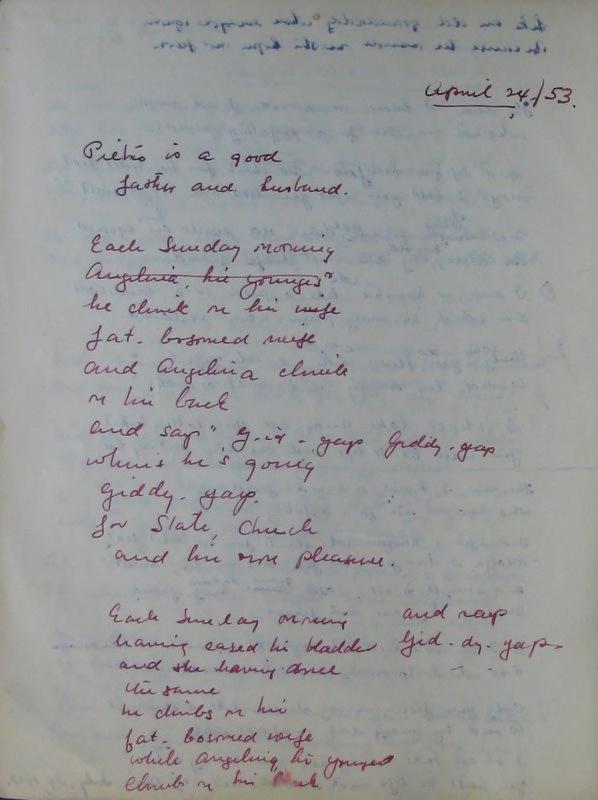 April 24/53.
Pietro is a good
father and husband.
Each Sunday morning
Angelina, his youngest
he climbs on his wife
fat-bosomed wife
and Angelina climbs
on his back
and says "G-id-yap Giddy-yap
when he's going
Giddy-yap.
for State, Church
and his own pleasure.
Each Sunday morning
having eased his bladder
and she having done
the same
he climbs on his
fat-bosomed wife
while Angelina, his youngest
climbs on his back
and says
Gid-dy-yap-